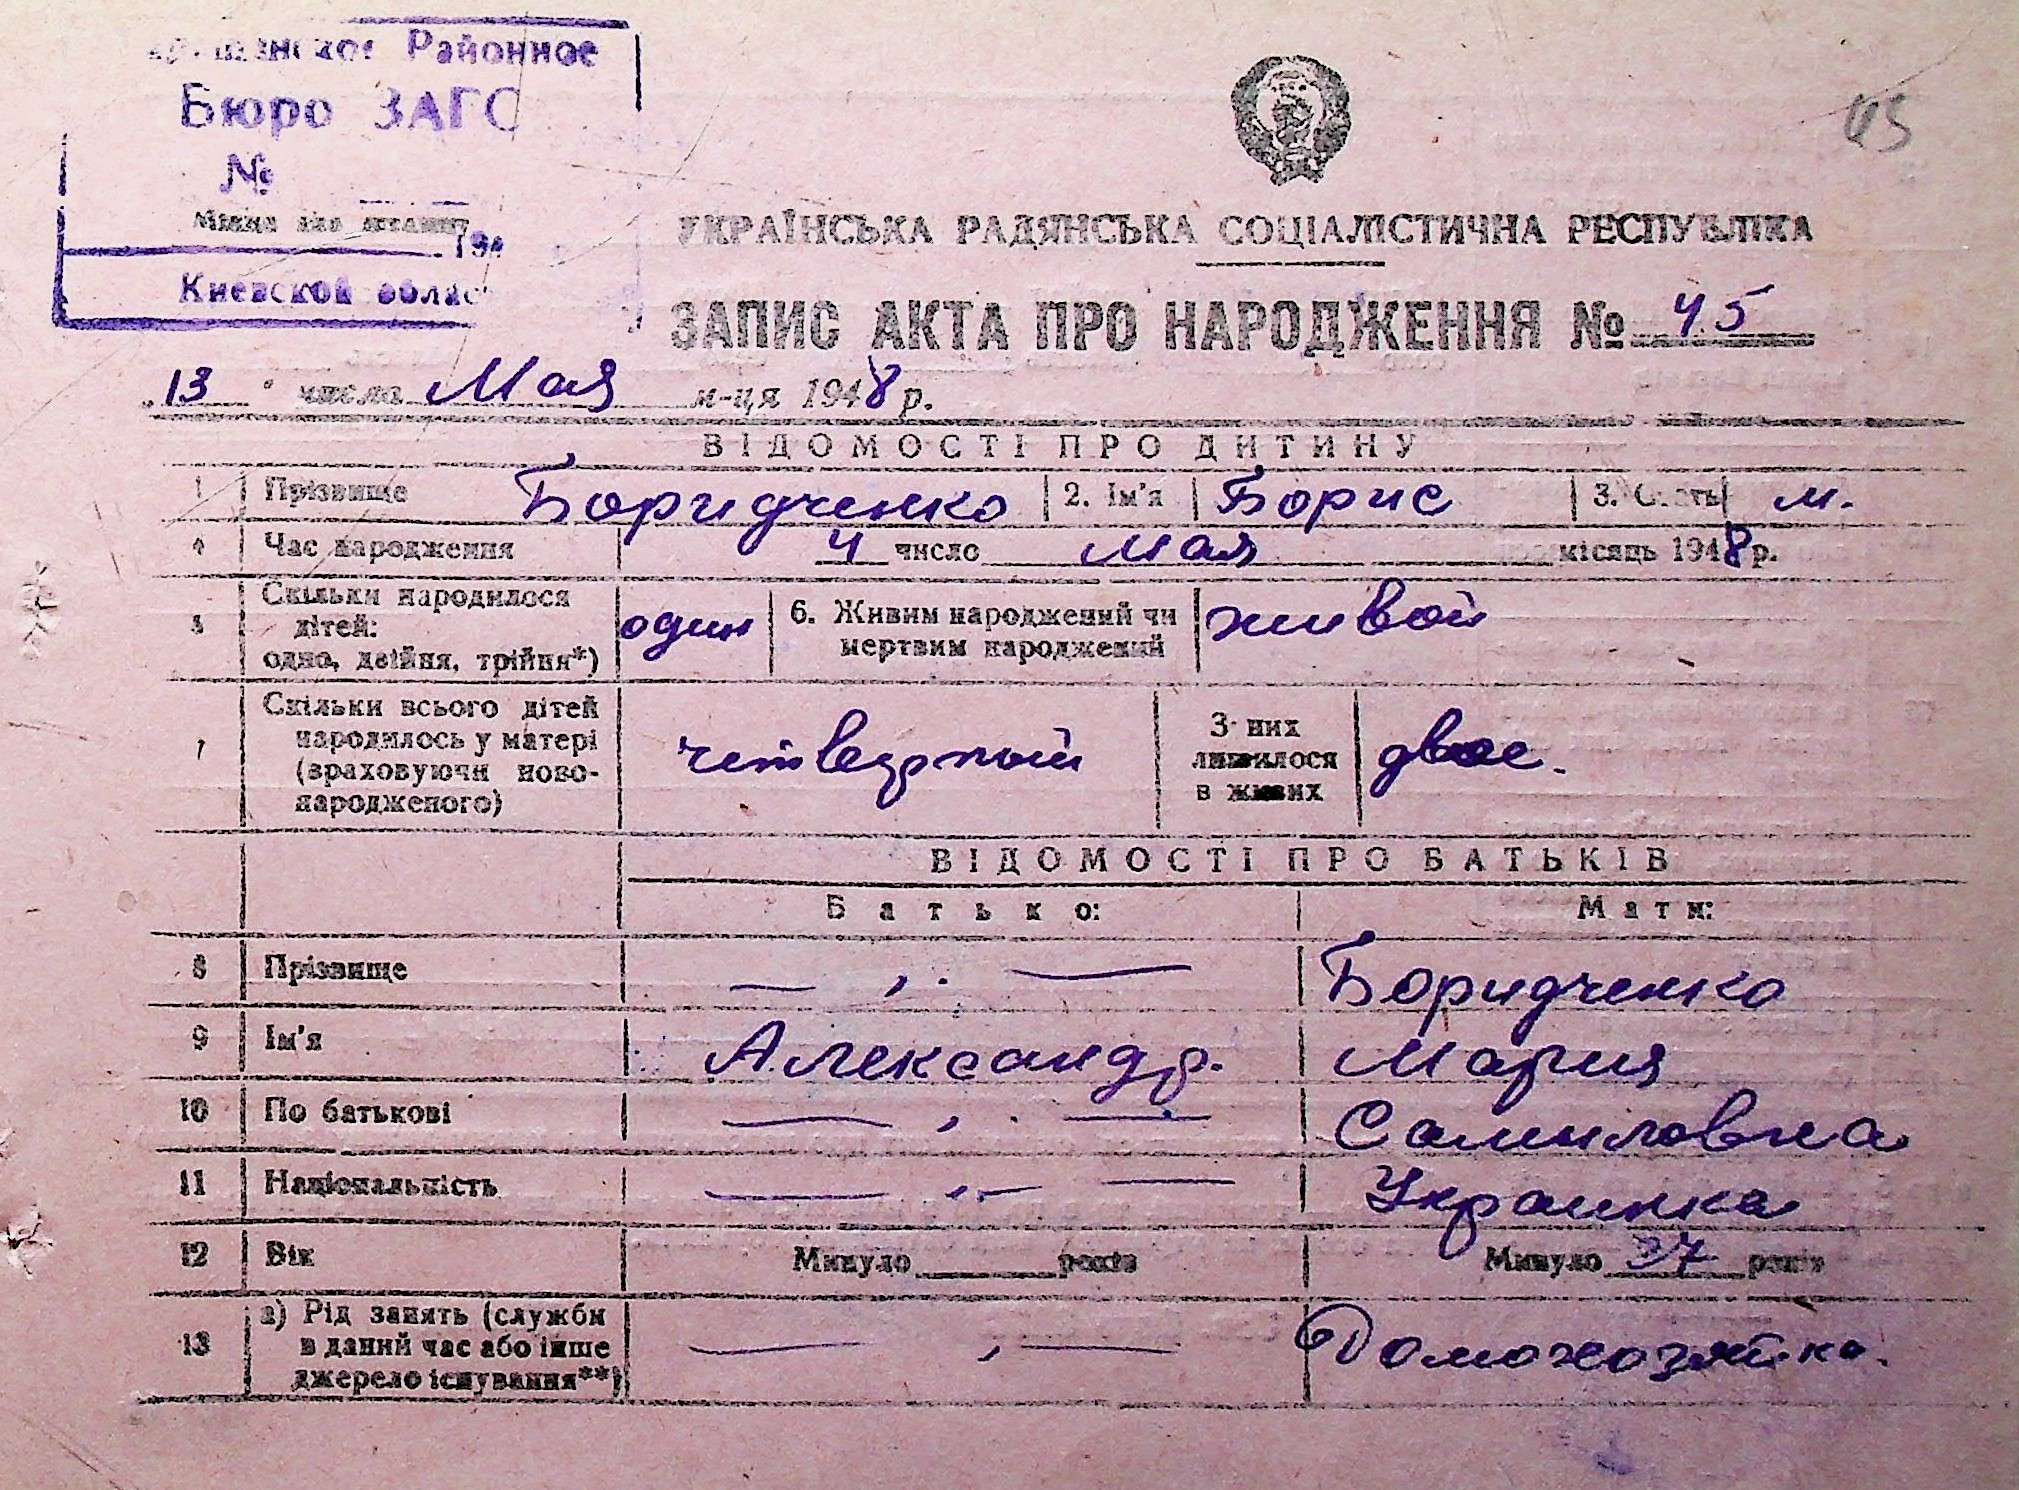 Районное
Бюро ЗАГС
№
194
Киевской облас
45
УКРАЇНСЬКА РАДЯНСЬКА СОЦІАЛІСТИЧНА РЕСПУБЛІКА
ЗАПИС АКТА ПРО НАРОДЖЕННЯ № 45
„13" числа Мая м-ця 1948 р.
ВІДОМОСТІ ПРО ДИТИНУ
1 Прізвище Боридченко 2. Ім'я Борис 3. Стать м.
4 Час народження 4 число Мая місяць 1948 р.
5 Скільки народилося дітей: одно, двійня, трійня*) один 6. Живим народжений чи мертвим народжений живой
7 Скільки всього дітей народилось у матері (враховуючи новонародженого) четвертый З них лишилося в живих двое.
ВІДОМОСТІ ПРО БАТЬКІВ
Батько: Мати:
8 Прізвище — „ — Боридченко
9 Ім'я Александр. Мария
10 По батькові — „ — Самиловна
11 Національність — „ — Украинка
12 Вік Минуло ____ років Минуло 37 років
13 а) Рід занять (служби в даний час або інше джерело існування**) — „ — Домохозяйка.